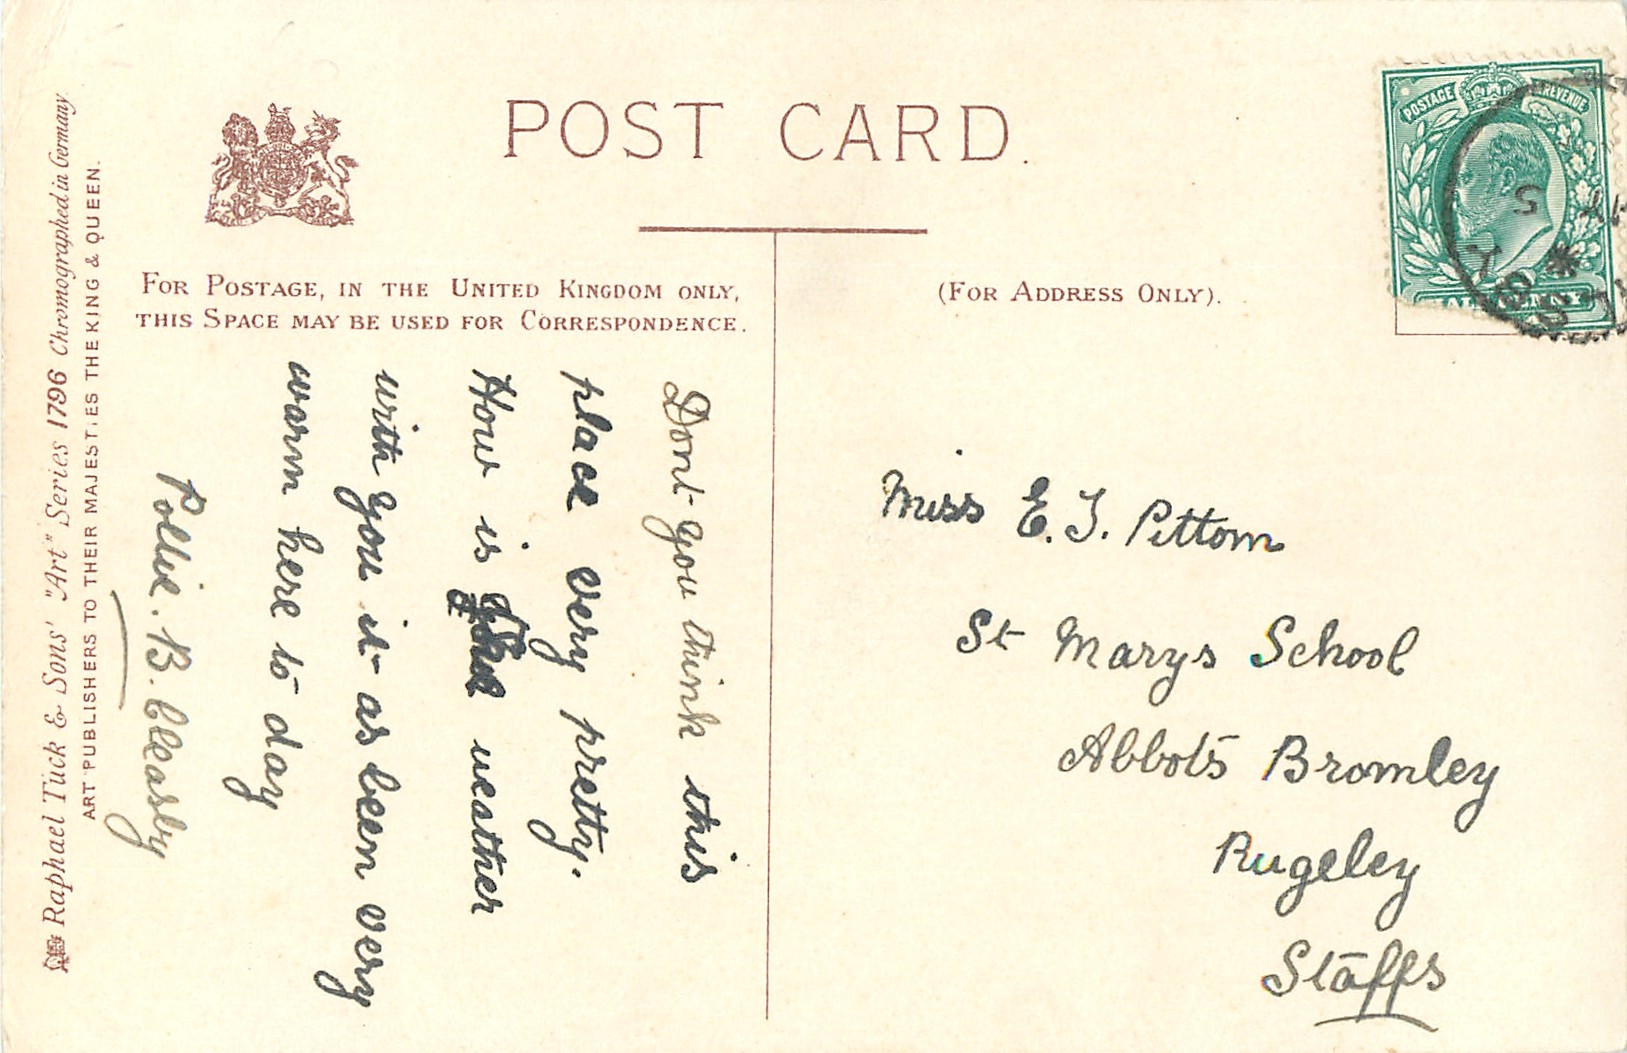 POST CARD.
FOR POSTAGE, IN THE UNITED KINGDOM ONLY,
THIS SPACE MAY BE USED FOR CORRESPONDENCE.
(FOR ADDRESS ONLY).
POSTAGE REVENUE
Dont you think this
place very pretty.
How is the weather
with you it as been very
warm here to day
Pollie. B. Cleasby
Miss E. J. Pittom
St Marys School
Abbots Bromley
Rugeley
Staffs
Raphael Tuck & Sons' "Art" Series 1796 Chromographed in Germany
ART PUBLISHERS TO THEIR MAJESTIES THE KING & QUEEN.